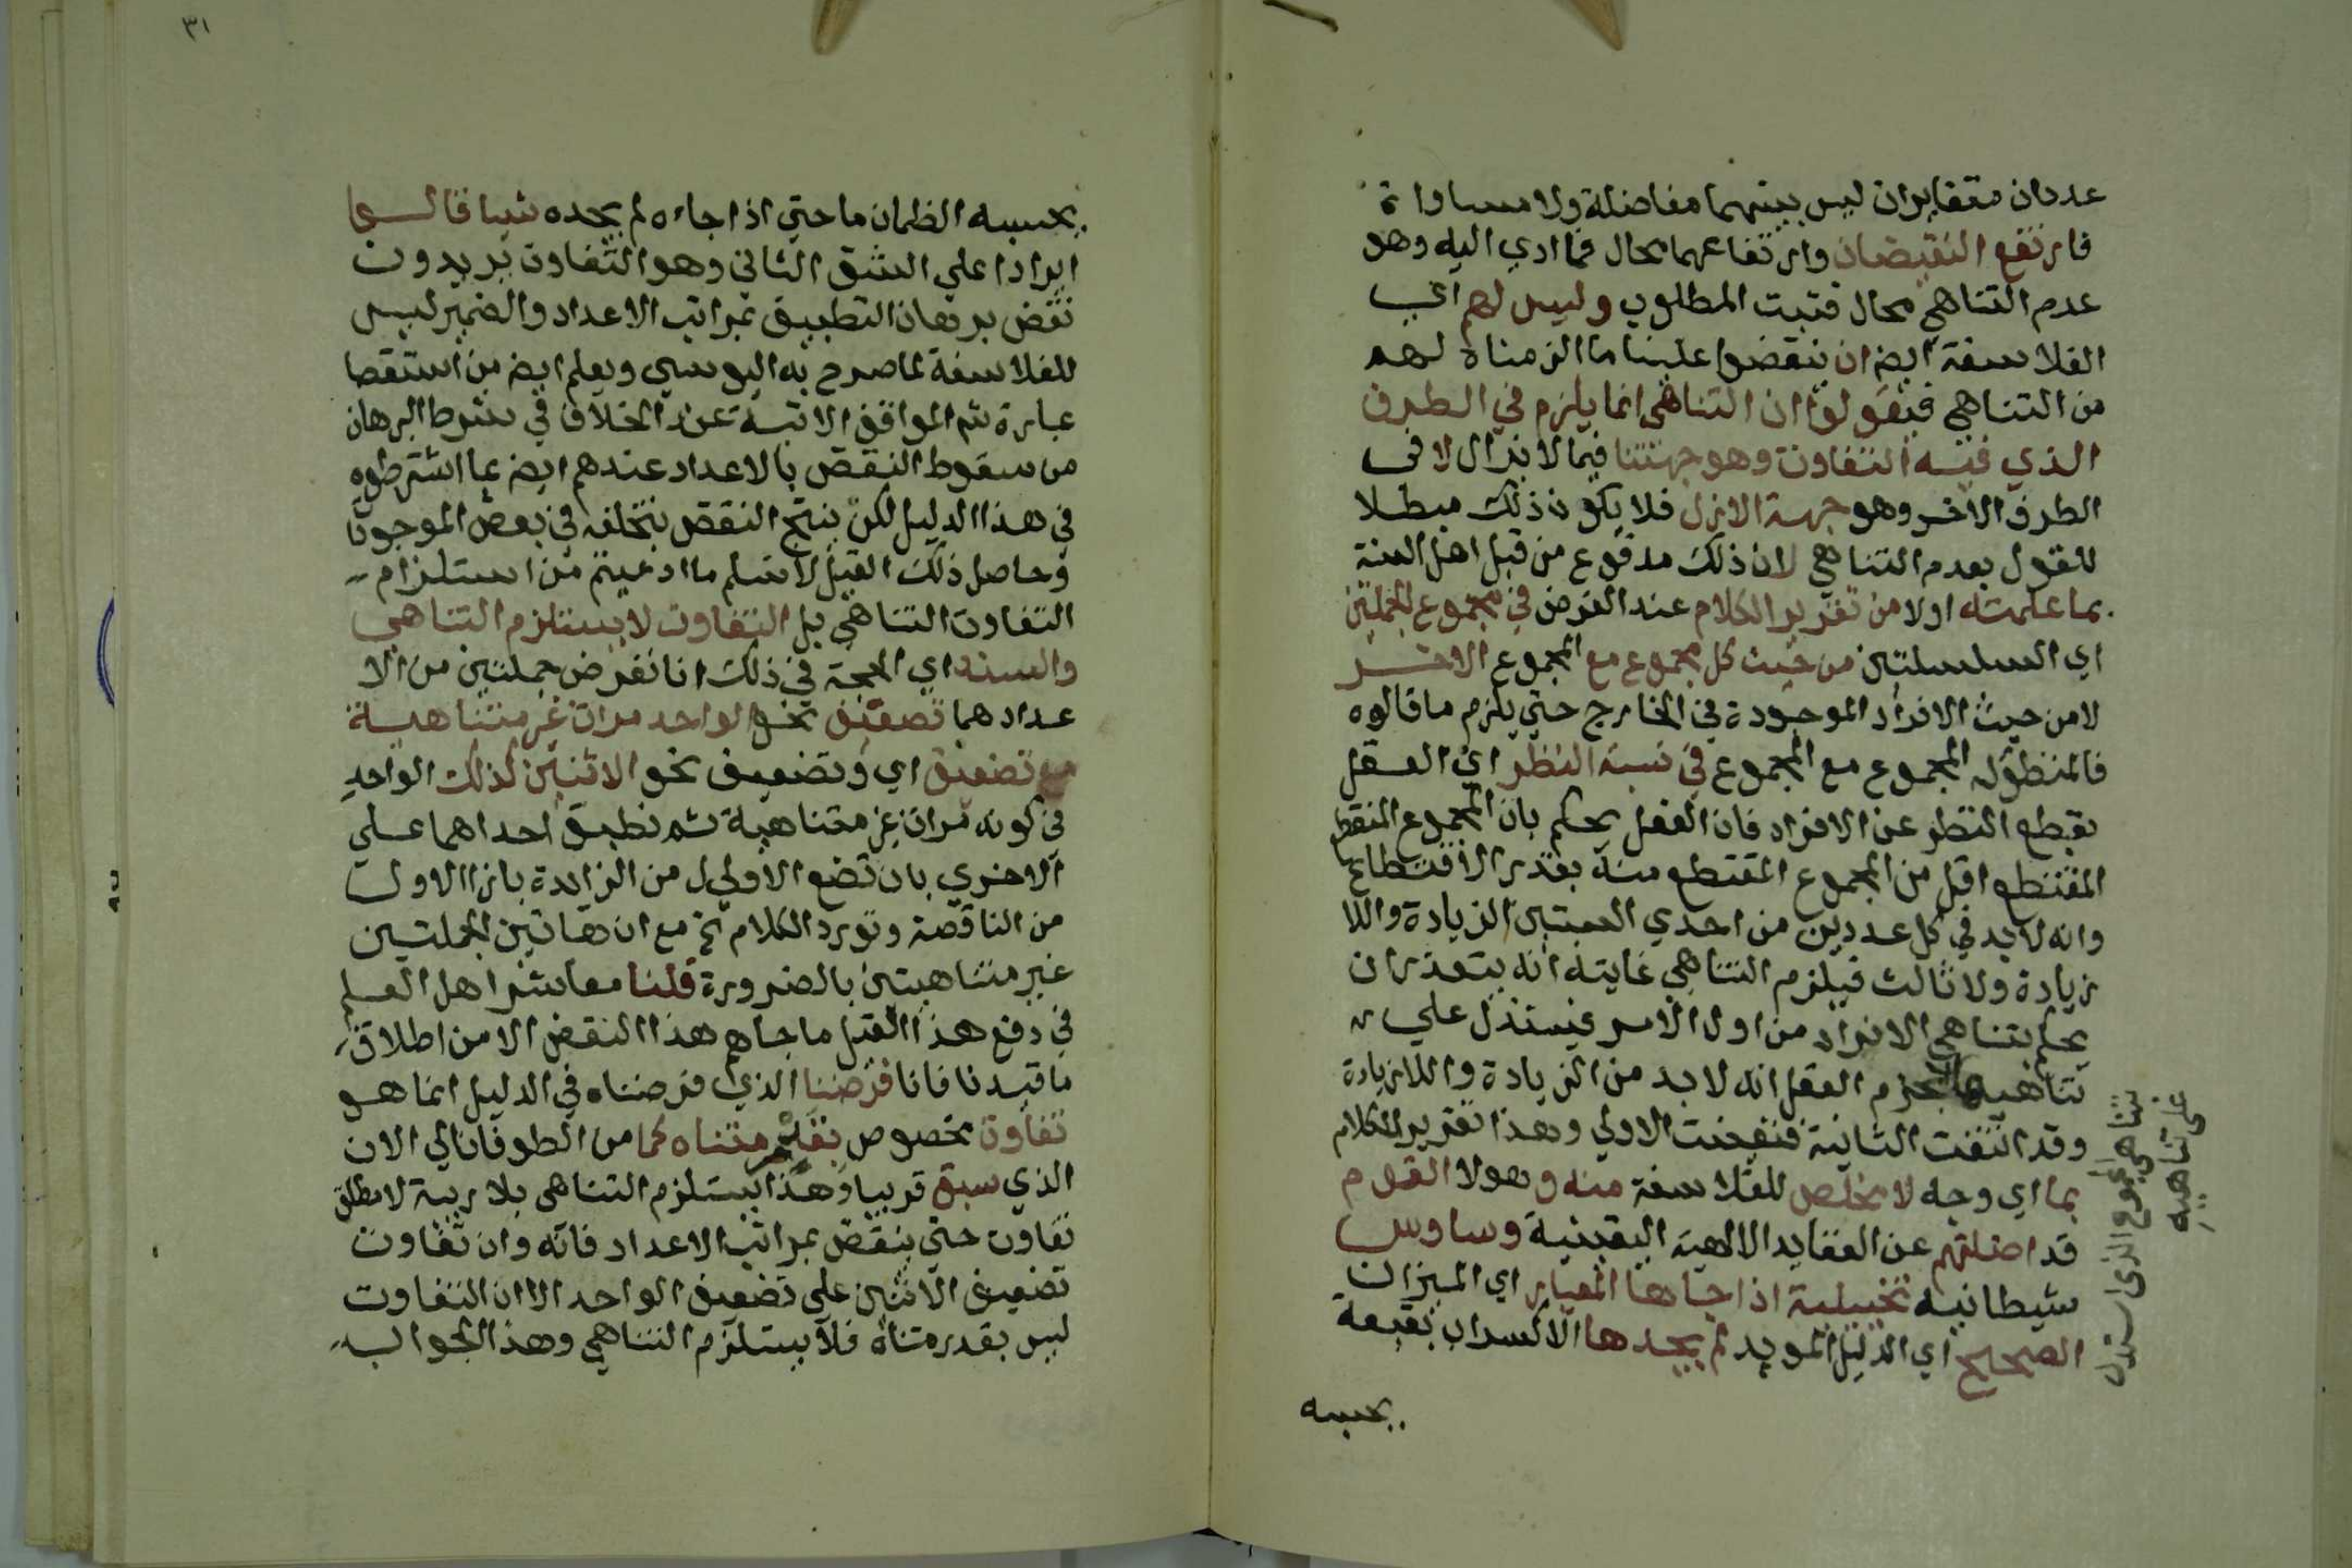 عددان متغايران ليس بينهما مفاضلة ولا مساواة
فارتفع النقيضان وارتفاعهما محال فما ادي اليه وهو
عدم التناهي محال فثبت المطلوب وليس لهم اي
الفلاسفة ايض ان ينقضوا علينا ما الزمناه لهم
من التناهي فيقولوا ان التناهي انما يلزم في الطرف
الذي فيه التفاوت وهو جهتنا فيما لا يزال لا في
الطرف الاخر وهو جهة الازل فلا يكون ذلك مبطلا
للقول بعدم التناهي لان ذلك مدفوع من قبل اهل السنة
بما علمته اولا من تقرير الكلام عند الفرض في مجموع الجملتين
اي السلسلتين من حيث كل مجموع مع المجموع الاخر
لا من حيث الافراد الموجودة في الخارج حتي يلزم ما قالوه
فالمنظور له المجموع مع المجموع في نسبة النظر اي العقل
بقطع النظر عن الافراد فان العقل يحكم بان المجموع
المقتطع اقل من المجموع المقتطع منه بقدر الاقتطاع
وانه لا بد في كل عددين من احدي النسبتين الزيادة واللا
زيادة ولا ثالث فيلزم التناهي غايته انه يتعذر ان
يحكم بتناهي الافراد من اول الامر فيستدل علي
تناهيها بجزم العقل انه لا بد من الزيادة واللازيادة
وقد انتفت الثانية فتعينت الاولي وهذا تقرير الكلام
بما اي وجه لا مخلص للفلاسفة منه وهولا القوم
قد اضلتهم عن العقايد الالهية اليقينية وساوس
شيطانية تخييلية اذا جاها المعيار اي الميزان
الصحيح اي الدليل المويد لم يجدها الا كسراب بقيعة
يحسبه
تناهي المجموع الذي استدل
علي تناهيه
٣١
يحسبه الظمان ما حتي اذا جاءه لم يجده شيا قالوا
ايرادا علي الشق الثاني وهو التفاوت يريدون
نقض برهان التطبيق بمراتب الاعداد والضمير ليس
للفلاسفة لما صرح به اليوسي ويعلم ايض من استقصا
عبارة شم المواقف الاتية عند الخلاف في شرط البرهان
من سقوط النقض بالاعداد عندهم ايض بما اشترطوه
في هذا الدليل لكن ينتج النقض بتخلفه في بعض الموجودا
وحاصل ذلك القيل لا نسلم ما ادعيتم من استلزام
التفاوت التناهي بل التفاوت لا يستلزم التناهي
والسند اي الحجة في ذلك انا نفرض جملتين من الا
عداد هما تضعيف نحو الواحد مرات غير متناهية
مع تضعيف اي وتضعيف نحو الاثنين كذلك الواحد
في كونه مرات غير متناهية ثم نطبق احداهما علي
الاخري بان تضع الاولي من الزايدة بازا الاولي
من الناقصة وتورد الكلام الخ مع ان هاتين الجملتين
غير متناهيتين بالضرورة قلنا معاشر اهل العلم
في دفع هذا القيل ما جاهم هذا النقض الا من اطلاق
ما قيدنا فانا فرضنا الذي فرضناه في الدليل انما هو
تفاوت مخصوص بقدر متناه كما من الطوفان الي الان
الذي سبق قريبا وهذا يستلزم التناهي بلا ريبة لا مطلق
تفاوت حتي ينقض بمراتب الاعداد فانه وان تفاوت
تضعيف الاثنين علي تضعيف الواحد الا ان التفاوت
ليس بقدر متناه فلا يستلزم التناهي وهذا الجواب